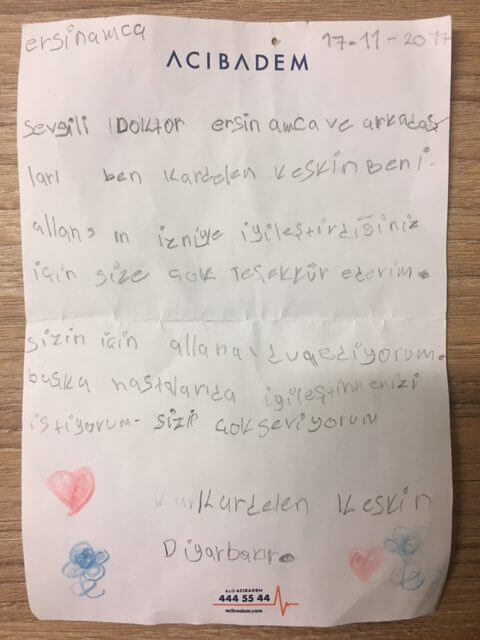 ersinamca
17-11-2017
ACIBADEM
sevgili DOKtOR ersin amca ve arkadaş
ları ben Kardelen Keskin beni
allahs ın izniye iyileştirdiğiniz
için size çok teşekkür ederim.
sizin için allaha duaediyorum.
başka hastalarıda iyileştirmenizi
istiyorum- sizi çokseviyorum
Kardelen Keskin
Diyarbakır.
ALO ACIBADEM
444 55 44
acibadem.com